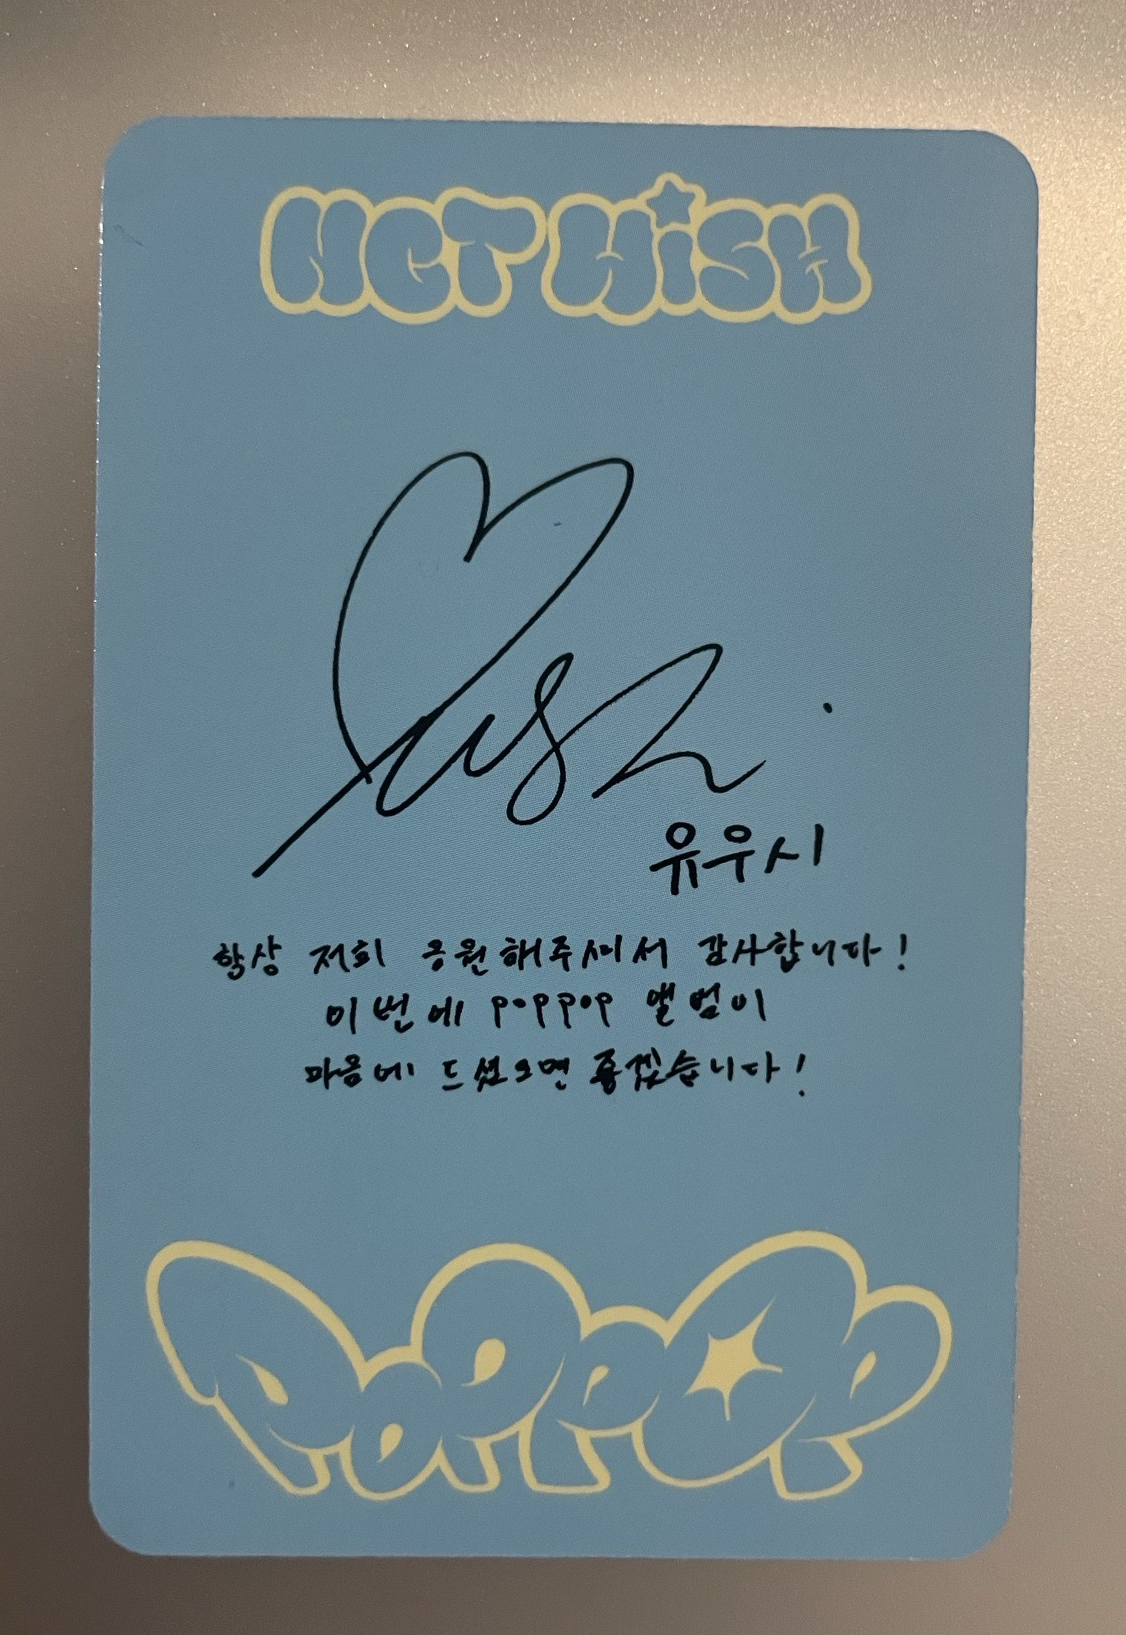 NCT WiSH
Yushi
유우시
항상 저희 응원해주셔서 감사합니다!
이번에 POPPOP 앨범이
마음에 드셨으면 좋겠습니다!
POPPOP